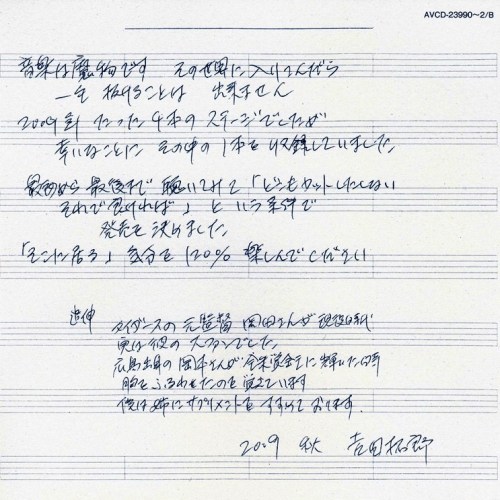 AVCD-23990~2/B
音楽は魔物です その世界に入りこんだら
一生 抜けることは 出来ません
2009年 たった4本の ステージでしたが
幸いなことに その中の1本を 収録していました
最初から 最後まで 聴いてみて 「どこもカットしたくない
それで良ければ」 という条件で
発売を 決めました
「そこに居る」 気分を 120% 楽しんでください
追伸
タイガースの 元監督 岡田さんが 現役時代
実は彼の 大ファンでした
広島出身の 岡本さんが 音楽賞金に 輝いた時
胸を ふるわせたのを 覚えています
僕は姉に サプリメントを すすめて おります
2009 秋 吉田拓郎